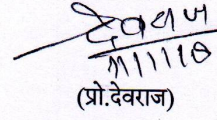 देवराज
(प्रो.देवराज)